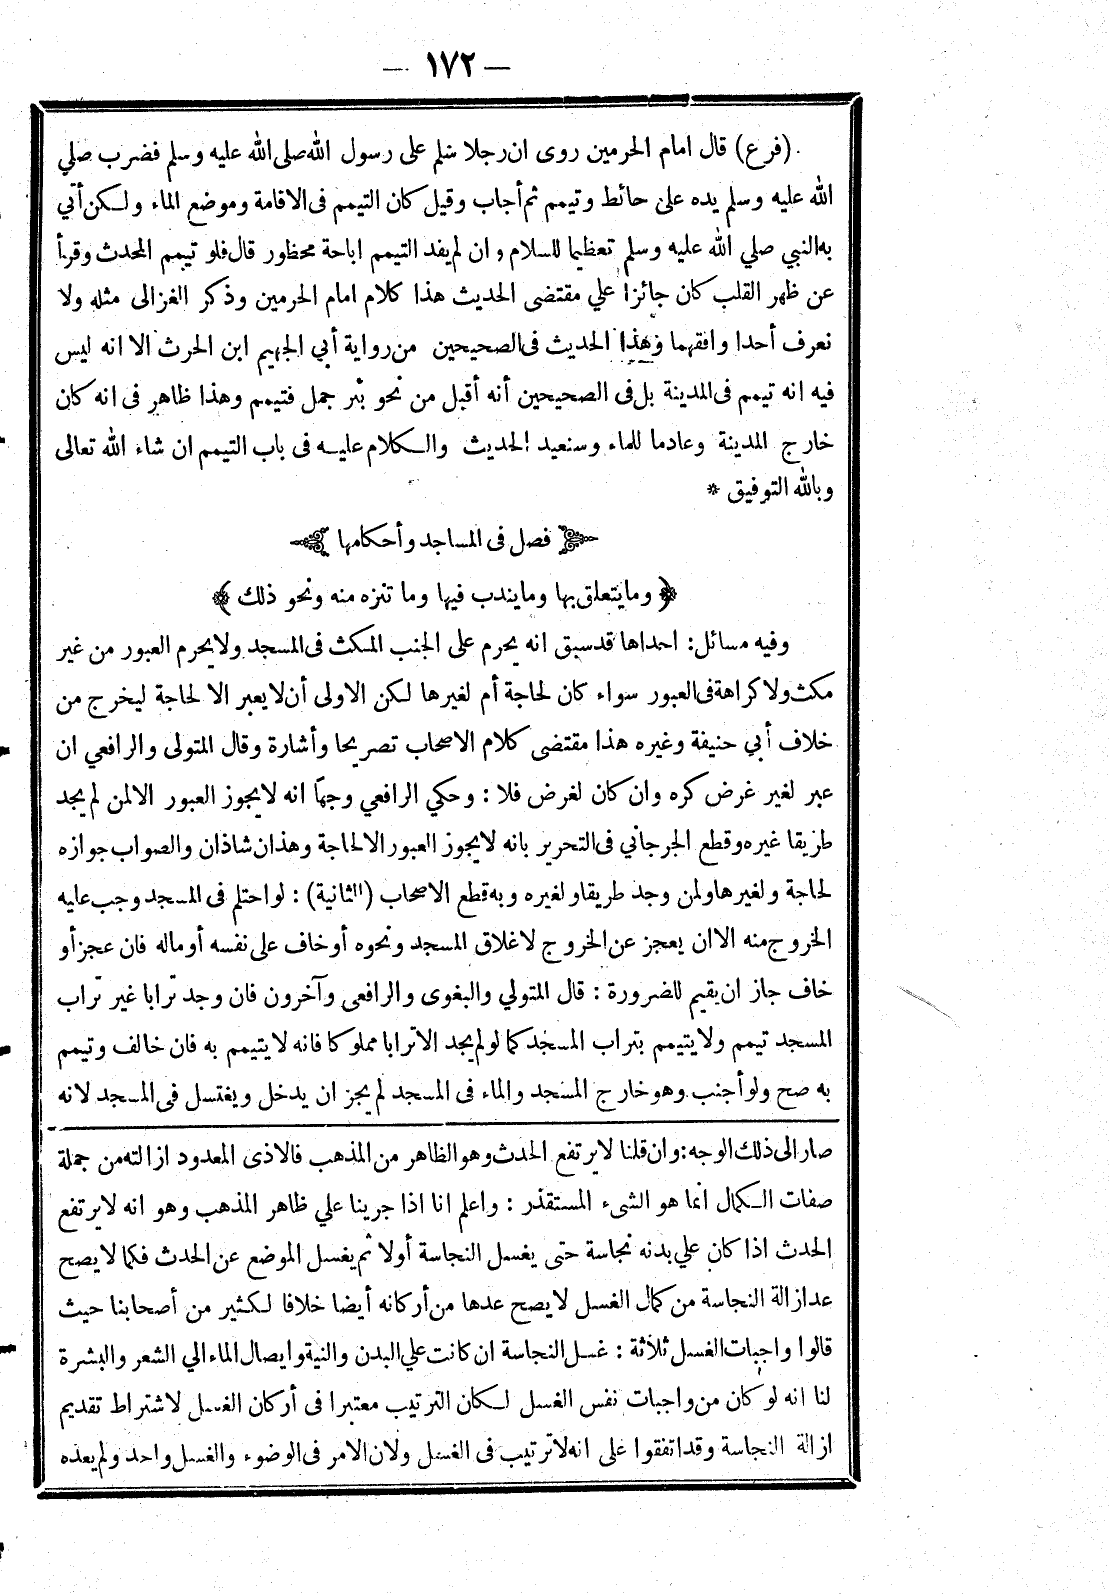 — ١٧٢ —
(فرع) قال امام الحرمين روى ان رجلا سلم على رسول الله صلى الله عليه وسلم فضرب صلي
الله عليه وسلم يده على حائط وتيمم ثم أجاب وقيل كان التيمم فى الاقامة وموضع الماء ولكن أتي
به النبي صلي الله عليه وسلم تعظيما للسلام وان لم يفد التيمم اباحة محظور قال فلو تيمم المحدث وقرأ
عن ظهر القلب كان جائزا علي مقتضى الحديث هذا كلام امام الحرمين وذكر الغزالى مثله ولا
نعرف أحدا وافقهما وهذا الحديث فى الصحيحين من رواية أبي الجهيم ابن الحرث الا انه ليس
فيه انه تيمم فى المدينة بل فى الصحيحين أنه أقبل من نحو بئر جمل فتيمم وهذا ظاهر فى انه كان
خارج المدينة وعادما للماء وسنعيد الحديث والكلام عليه فى باب التيمم ان شاء الله تعالى
وبالله التوفيق *
فصل فى المساجد وأحكامها
﴿ وما يتعلق بها وما يندب فيها وما تنزه منه ونحو ذلك ﴾
وفيه مسائل: احداها قد سبق انه يحرم على الجنب المكث فى المسجد ولا يحرم العبور من غير
مكث ولا كراهة فى العبور سواء كان لحاجة أم لغيرها لكن الاولى أن لا يعبر الا لحاجة ليخرج من
خلاف أبي حنيفة وغيره هذا مقتضى كلام الاصحاب تصريحا وأشارة وقال المتولى والرافعي ان
عبر لغير غرض كره وان كان لغرض فلا : وحكي الرافعي وجها انه لا يجوز العبور الا لمن لم يجد
طريقا غيره وقطع الجرجاني فى التحرير بانه لا يجوز العبور الا لحاجة وهذان شاذان والصواب جوازه
لحاجة ولغيرها ولمن وجد طريقا ولغيره وبه قطع الاصحاب (الثانية) : لو احتلم فى المسجد وجب عليه
الخروج منه الا ان يعجز عن الخروج لاغلاق المسجد ونحوه أو خاف على نفسه أو ماله فان عجز أو
خاف جاز ان يقيم للضرورة : قال المتولي والبغوى والرافعى وآخرون فان وجد ترابا غير تراب
المسجد تيمم ولا يتيمم بتراب المسجد كما لو لم يجد الا ترابا مملوكا فانه لا يتيمم به فان خالف وتيمم
به صح ولو أجنب وهو خارج المسجد والماء فى المسجد لم يجز ان يدخل ويغتسل فى المسجد لانه
صار الى ذلك الوجه: وان قلنا لا يرتفع الحدث وهو الظاهر من المذهب فالاذى المعدود ازالته من جملة
صفات الكمال انما هو الشىء المستقذر : واعلم انا اذا جرينا علي ظاهر المذهب وهو انه لا يرتفع
الحدث اذا كان علي بدنه نجاسة حتى يغسل النجاسة أولا ثم يغسل الموضع عن الحدث فكما لا يصح
عد ازالة النجاسة من كمال الغسل لا يصح عدها من أركانه أيضا خلافا لكثير من أصحابنا حيث
قالوا واجبات الغسل ثلاثة : غسل النجاسة ان كانت علي البدن والنية وايصال الماء الي الشعر والبشرة
لنا انه لو كان من واجبات نفس الغسل لكان الترتيب معتبرا فى أركان الغسل لاشتراط تقديم
ازالة النجاسة وقد اتفقوا على انه لا ترتيب فى الغسل ولان الامر فى الوضوء والغسل واحد ولم يعده